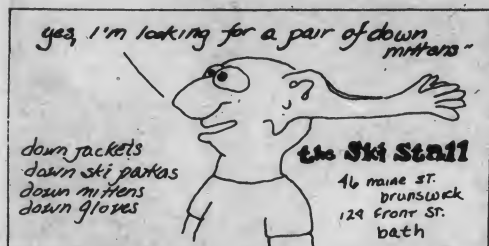 yes, I'm looking for a pair of down
mittens"
down jackets
down ski parkas
down mittens
down gloves
the Ski Stall
46 maine ST.
brunswick
124 Front ST.
bath